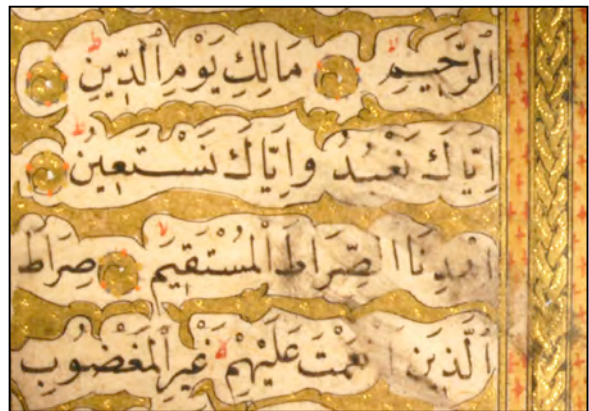 ٱلرَّحِيمِ مَالِكِ يَوْمِ ٱلدِّينِ
إِيَّاكَ نَعْبُدُ وَإِيَّاكَ نَسْتَعِينُ
اهْدِنَا ٱلصِّرَاطَ ٱلْمُسْتَقِيمَ صِرَاطَ
ٱلَّذِينَ أَنْعَمْتَ عَلَيْهِمْ غَيْرِ ٱلْمَغْضُوبِ